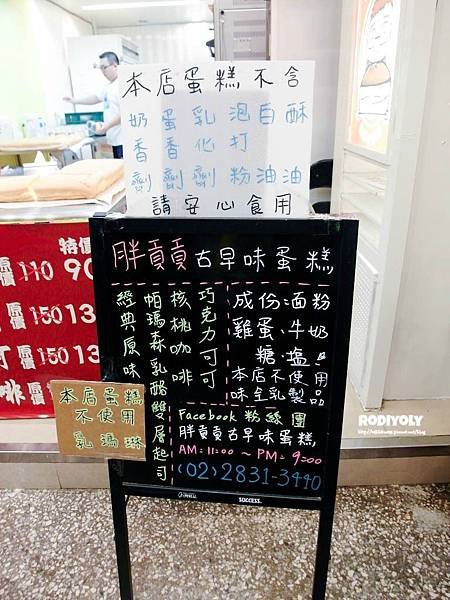 本店蛋糕不含
奶香劑
蛋香劑
乳化劑
泡打粉
白油
酥油
請安心食用
胖貢貢古早味蛋糕
經典原味
帕瑪森乳酪雙層起司
核桃咖啡
巧克力可可
成份:面粉
雞蛋、牛奶
糖、塩。
本店不使用
味全乳製品
Facebook 粉絲團
胖貢貢古早味蛋糕
AM:11:00 ~ PM:9:00
(02)2831-3440
SUCCESS.
本店蛋糕
不使用
乳瑪琳
特價
原價110 90
原價150 13
原價150 13
啡 原價
RODIYOLY